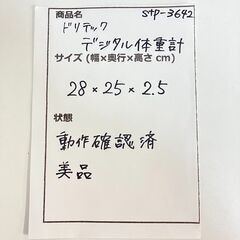 商品名
stp-3642
ドリテック
デジタル体重計
サイズ (幅×奥行×高さ cm)
28×25×2.5
状態
動作確認済
美品